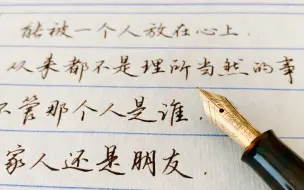 能被一个人放在心上.
从来都不是理所当然的事
不管那个人是谁.
家人还是朋友.